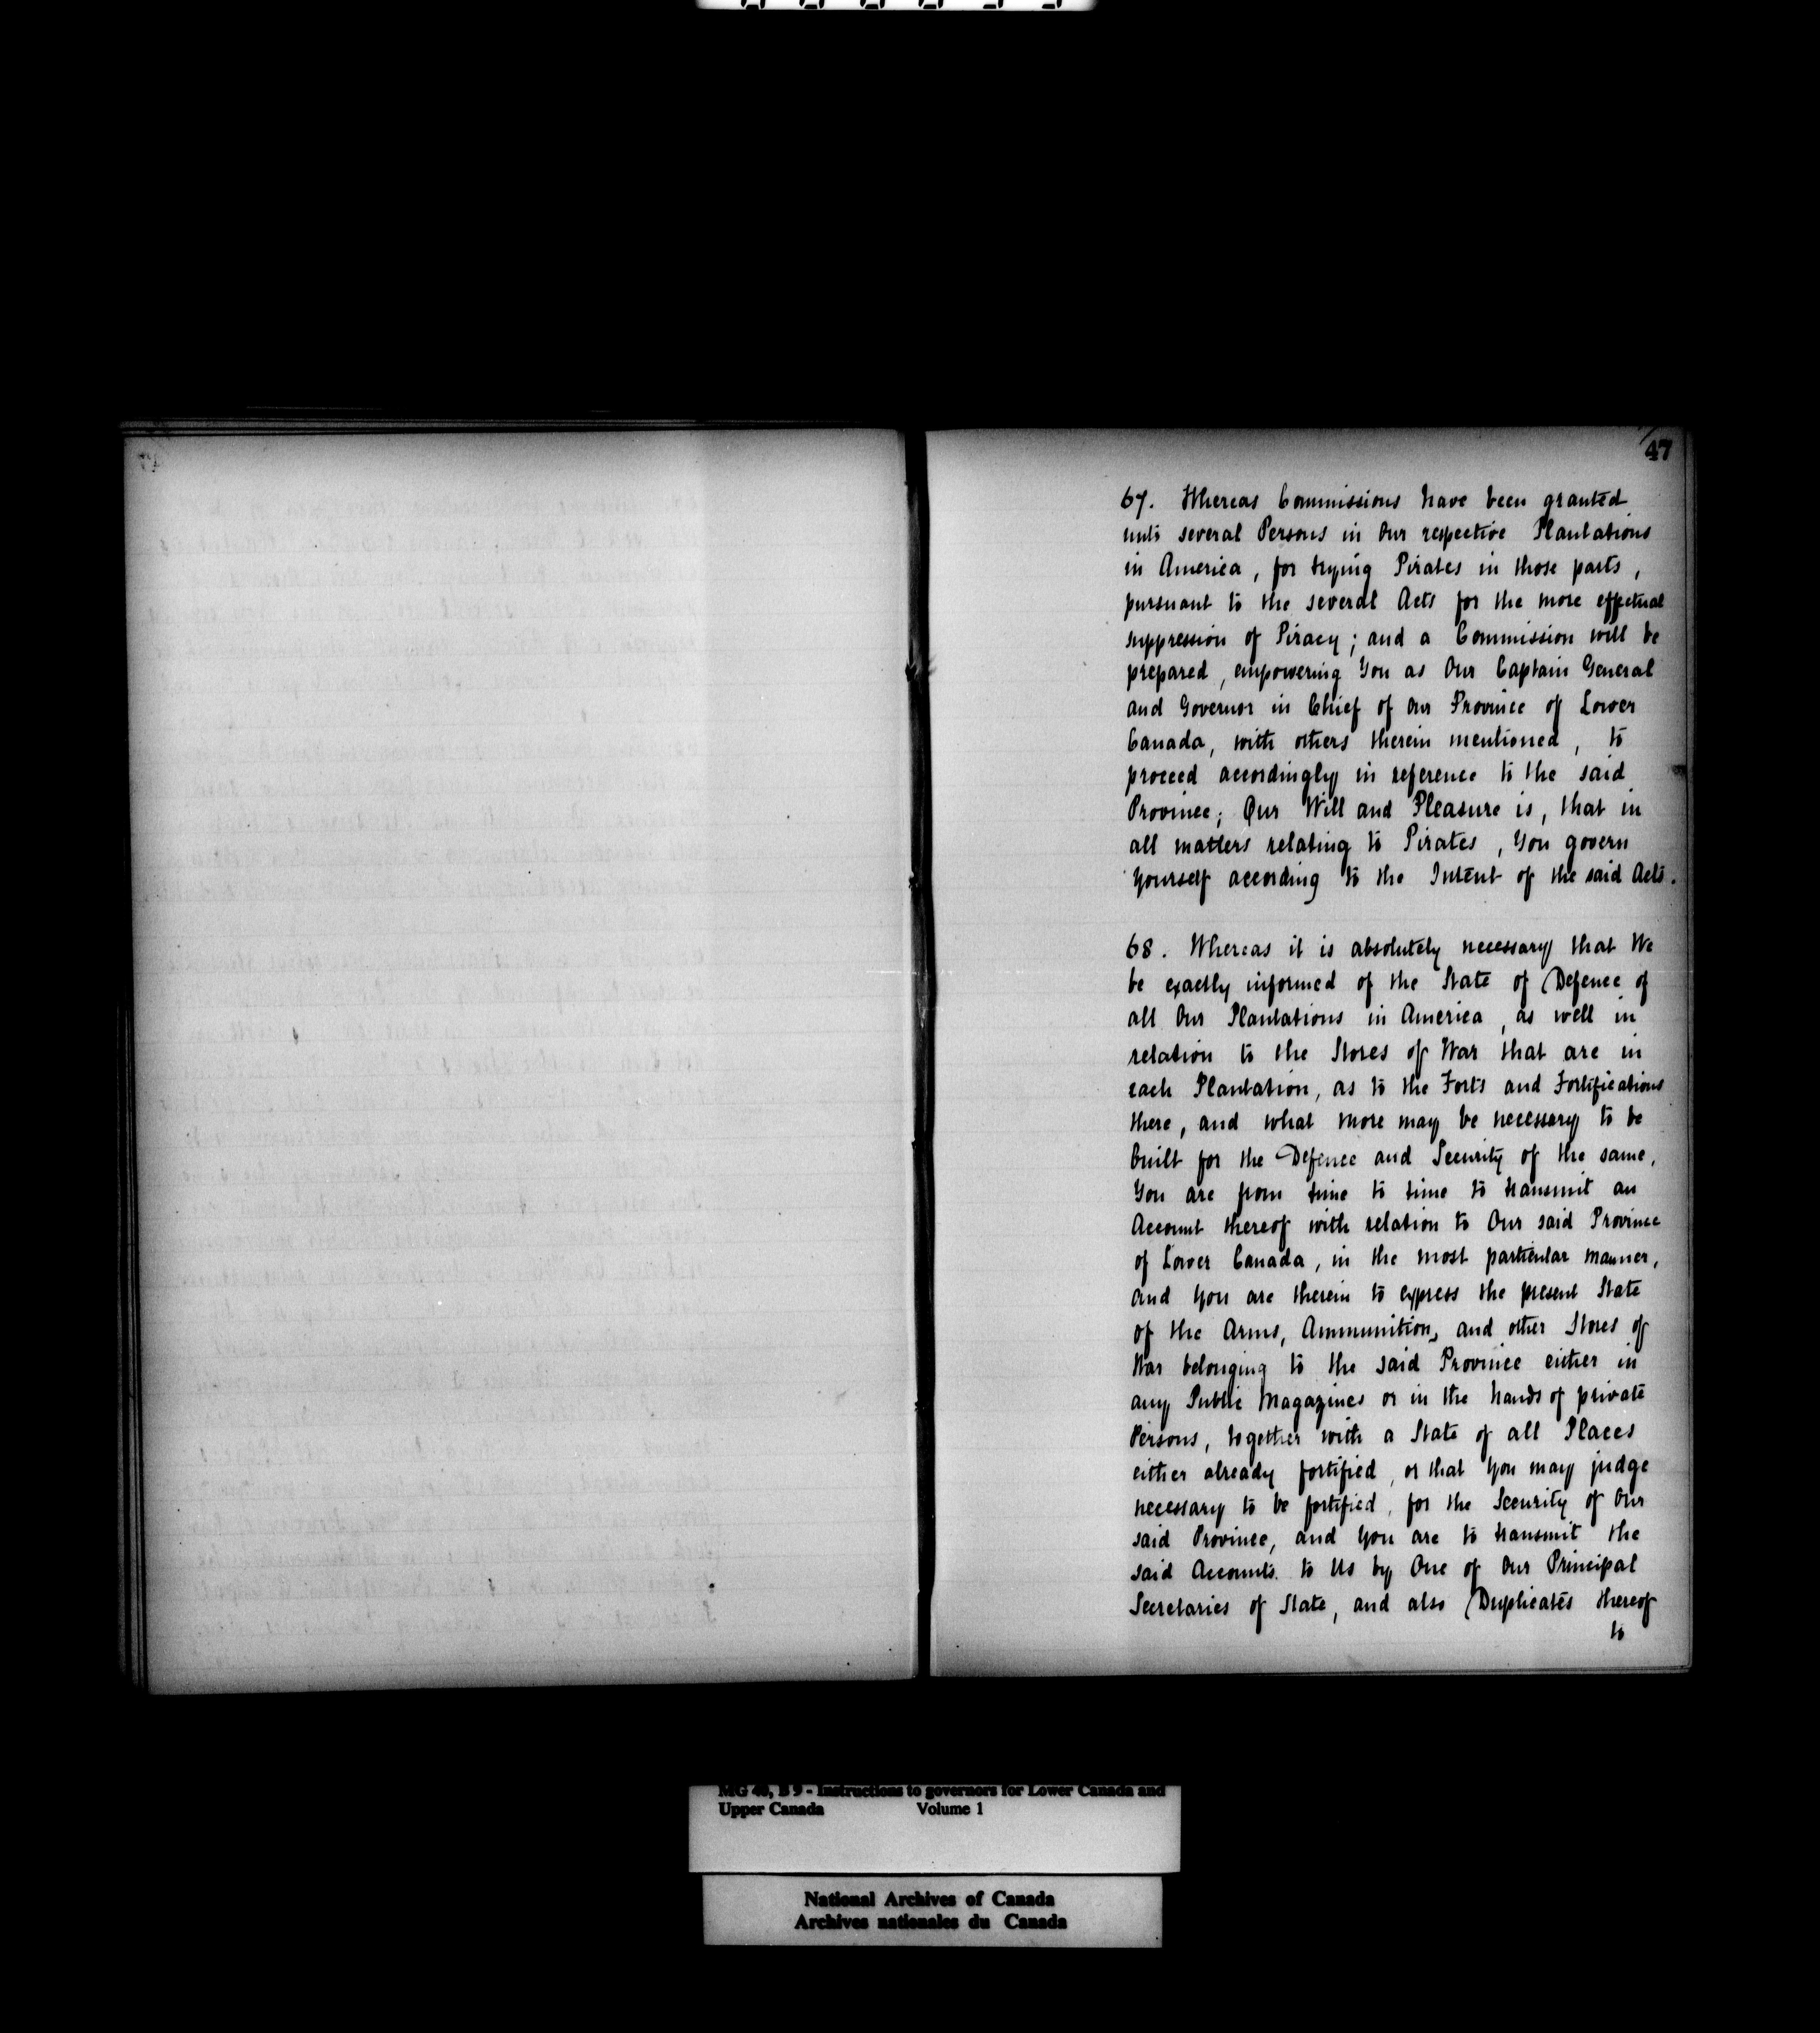 47
67. Whereas Commissions have been granted
unto several Persons in Our respective Plantations
in America, for trying Pirates in those parts,
pursuant to the several Acts for the more effectual
suppression of Piracy; and a Commission will be
prepared, empowering You as Our Captain General
and Governor in Chief of Our Province of Lower
Canada, with others therein mentioned, to
proceed accordingly in reference to the said
Province; Our Will and Pleasure is, that in
all matters relating to Pirates, You govern
Yourself according to the Intent of the said Acts.
68. Whereas it is absolutely necessary that We
be exactly informed of the State of Defence of
all Our Plantations in America, as well in
relation to the Stores of War that are in
each Plantation, as to the Forts and Fortifications
there, and what more may be necessary to be
built for the Defence and Security of the same,
You are from time to time to transmit an
Account thereof with relation to Our said Province
of Lower Canada, in the most particular manner,
and You are therein to express the present State
of the Arms, Ammunition, and other Stores of
War belonging to the said Province either in
any Public Magazines or in the hands of private
Persons, together with a State of all Places
either already fortified, or that You may judge
necessary to be fortified, for the Security of Our
said Province, and You are to transmit the
said Accounts. to Us by One of Our Principal
Secretaries of State, and also Duplicates thereof
to
MG 40, B 9 - Instructions to governors for Lower Canada and
Upper Canada Volume 1
National Archives of Canada
Archives nationales du Canada